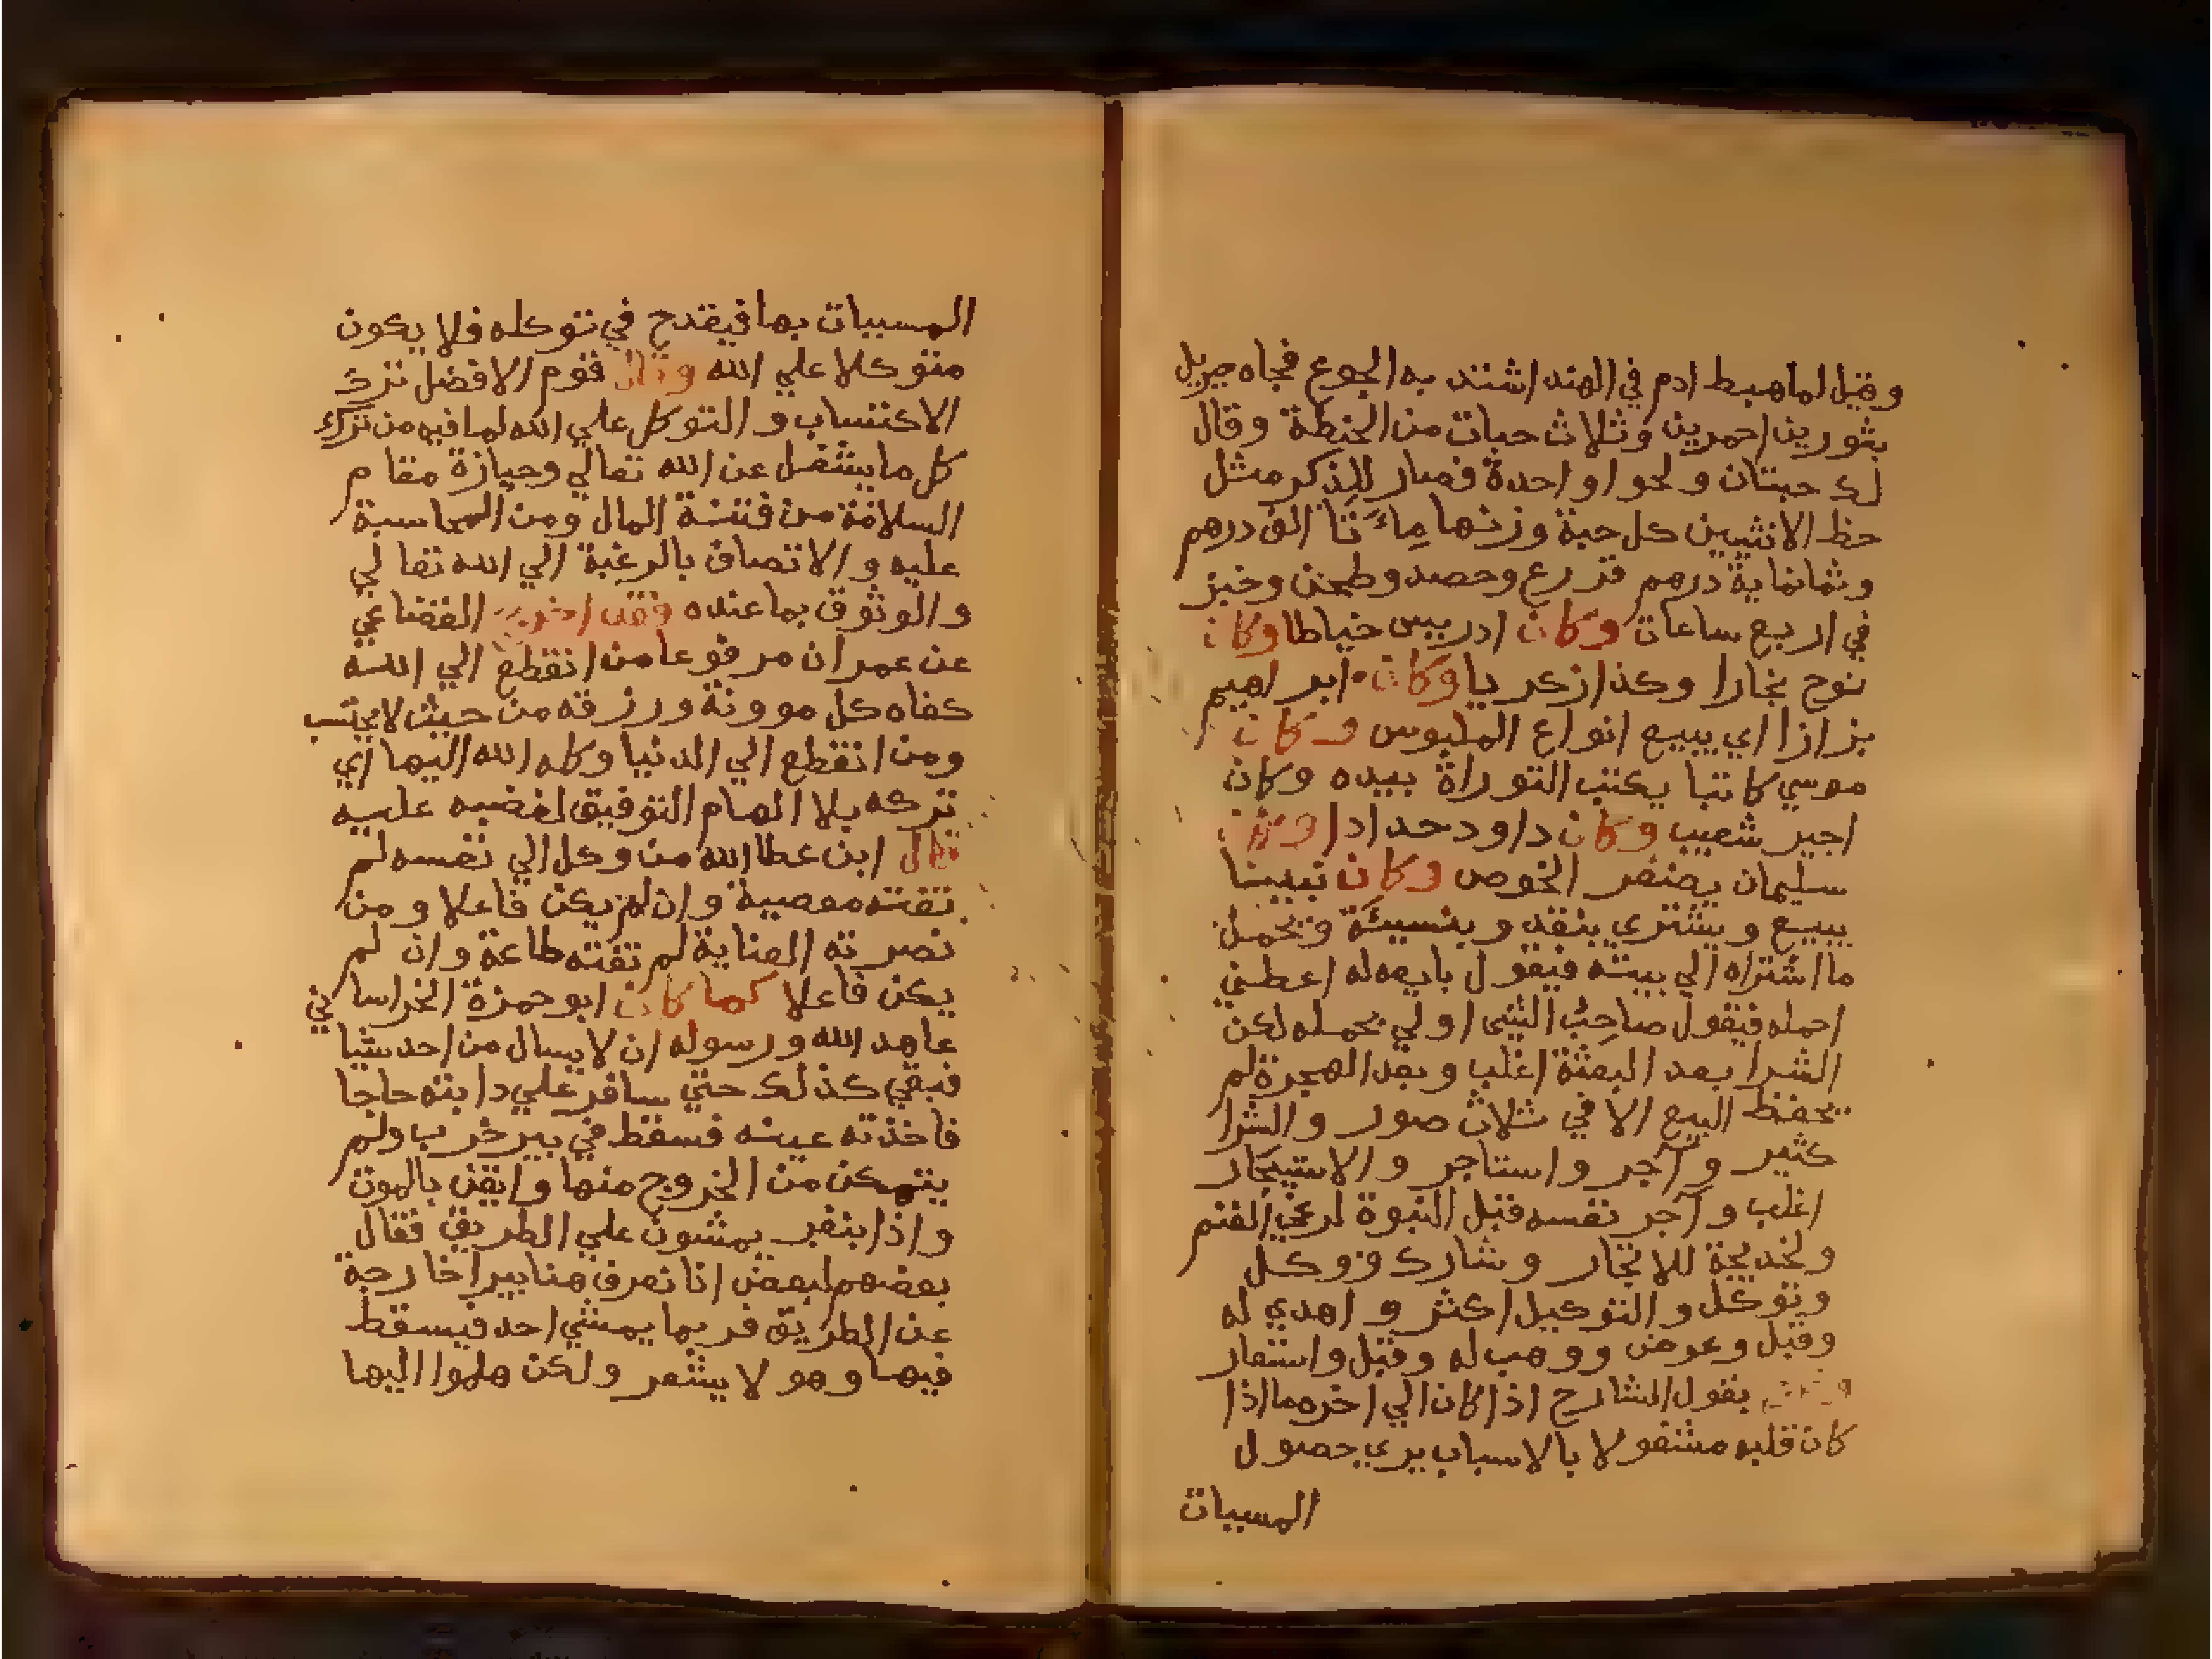 وقيل لما هبط ادم في الهند اشتد به الجوع فجاه جبريل
بثورين احمرين وثلاث حبات من الحنطة وقال
لك حبتان ولحوا واحدة فصار للذكر مثل
حظ الانثيين كل حبة وزنها مِاءَتَا الف درهم
وثمانماية درهم فزرع وحصد وطحن وخبز
في اربع ساعات وكان ادريس خياطا وكان
نوح نجارا وكذا زكريا وكان ابراهيم
بزازا اي يبيع انواع الملبوس وكان
موسي كاتبا يكتب التوراة بيده وكان
اجير شعيب وكان داود حدادا وكان
سليمان يضفر الخوص وكان نبينا
يبيع ويشتري بنقد وبنسيئة ويحمل
ما اشتراه الي بيته فيقول بايعه له اعطني
احمله فيقول صاحِبُ الشي اولي بحمله لكن
الشرا بعد البعثة اغلب وبعد الهجرة لم
يحفظ البيع الا في ثلاث صور والشرا
كثير وآجر واستاجر والاستيجار
اغلب وآجر نفسه قبل النبوة لرعي الغنم
ولخديجة للاتجار وشارك ووكل
وتوكل والتوكيل اكثر واهدي له
وقبل وعوض ووهب له وقبل واستعار
بقول الشارح اذا كان الي اخره ما اذا
كان قلبه مشغولا بالاسباب يري حصول
المسببات
المسببات بها فيقدح في توكله فلا يكون
متوكلا علي الله وقال قوم الافضل ترك
الاكتساب والتوكل علي الله لما فيه من ترك
كل ما يشغل عن الله تعالي وحيازة مقام
السلامة من فتنة المال ومن المحاسبة
عليه والاتصاف بالرغبة الي الله تعالي
والوثوق بما عنده فقد اخرج القضاعي
عن عمران مرفوعا من انقطع الي الله
كفاه كل موونة ورزقه من حيث لا يحتسب
ومن انقطع الي الدنيا وكله الله اليها اي
تركه بلا الهام التوفيق لغضبه عليه
قال ابن عطا الله من وكل الي نفسه لم
تفته معصية وان لم يكن فاعلا ومن
نصرته العناية لم تفته طاعة وان لم
يكن فاعلا كما كان ابو حمزة الخراساني
عاهد الله ورسوله ان لا يسال من احد شيا
فبقي كذلك حتي سافر علي دابته حاجا
فاخذته عينه فسقط في بير خرب ولم
يتمكن من الخروج منها وايقن بالموت
واذا بنفر يمشون علي الطريق فقال
بعضهم لبعض انا نعرف هنا بيرا خارجة
عن الطريق فربما يمشي احد فيسقط
فيها وهو لا يشعر ولكن هلموا اليها